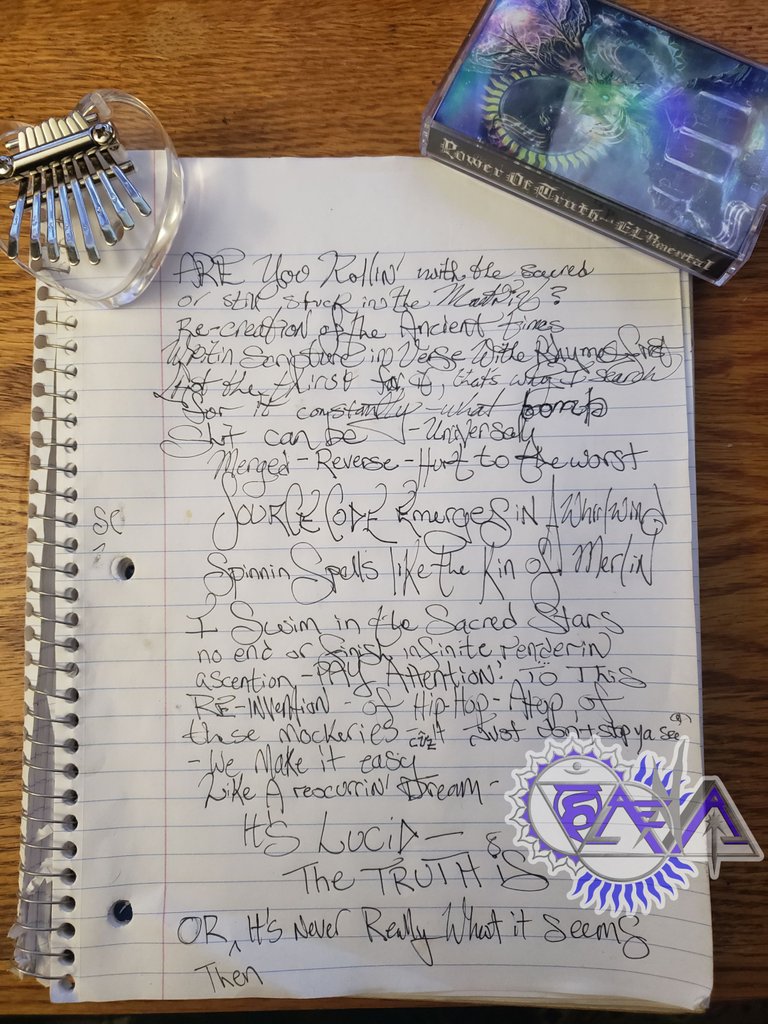 Power Of Truth ELPmental
ARE You Rollin' with the sacred
or still stuck in the Matrix?
Re-creation of the Ancient times
Scripture in Verse With Rhymes first
the thirst for it, that's why I search
for it constantly - what bomb
Shit can be - Universaly
Merged - Reverse - Hurt to the worst
SOURCE CODE Emerges in A Whirlwind
se
Spinnin Spells like the Kin of Merlin
I Swim in the Sacred Stars
no end or finish infinite renderin
ascention - PAY Attention! To This
RE-INVENTION - of Hip-Hop - Atop of
these mockeries - cuz it just don't stop ya see
- We Make it easy
Like A reocurrin' Dream -
It's LUCID -
The TRUTH is
OR, It's Never Really What it Seems
Then